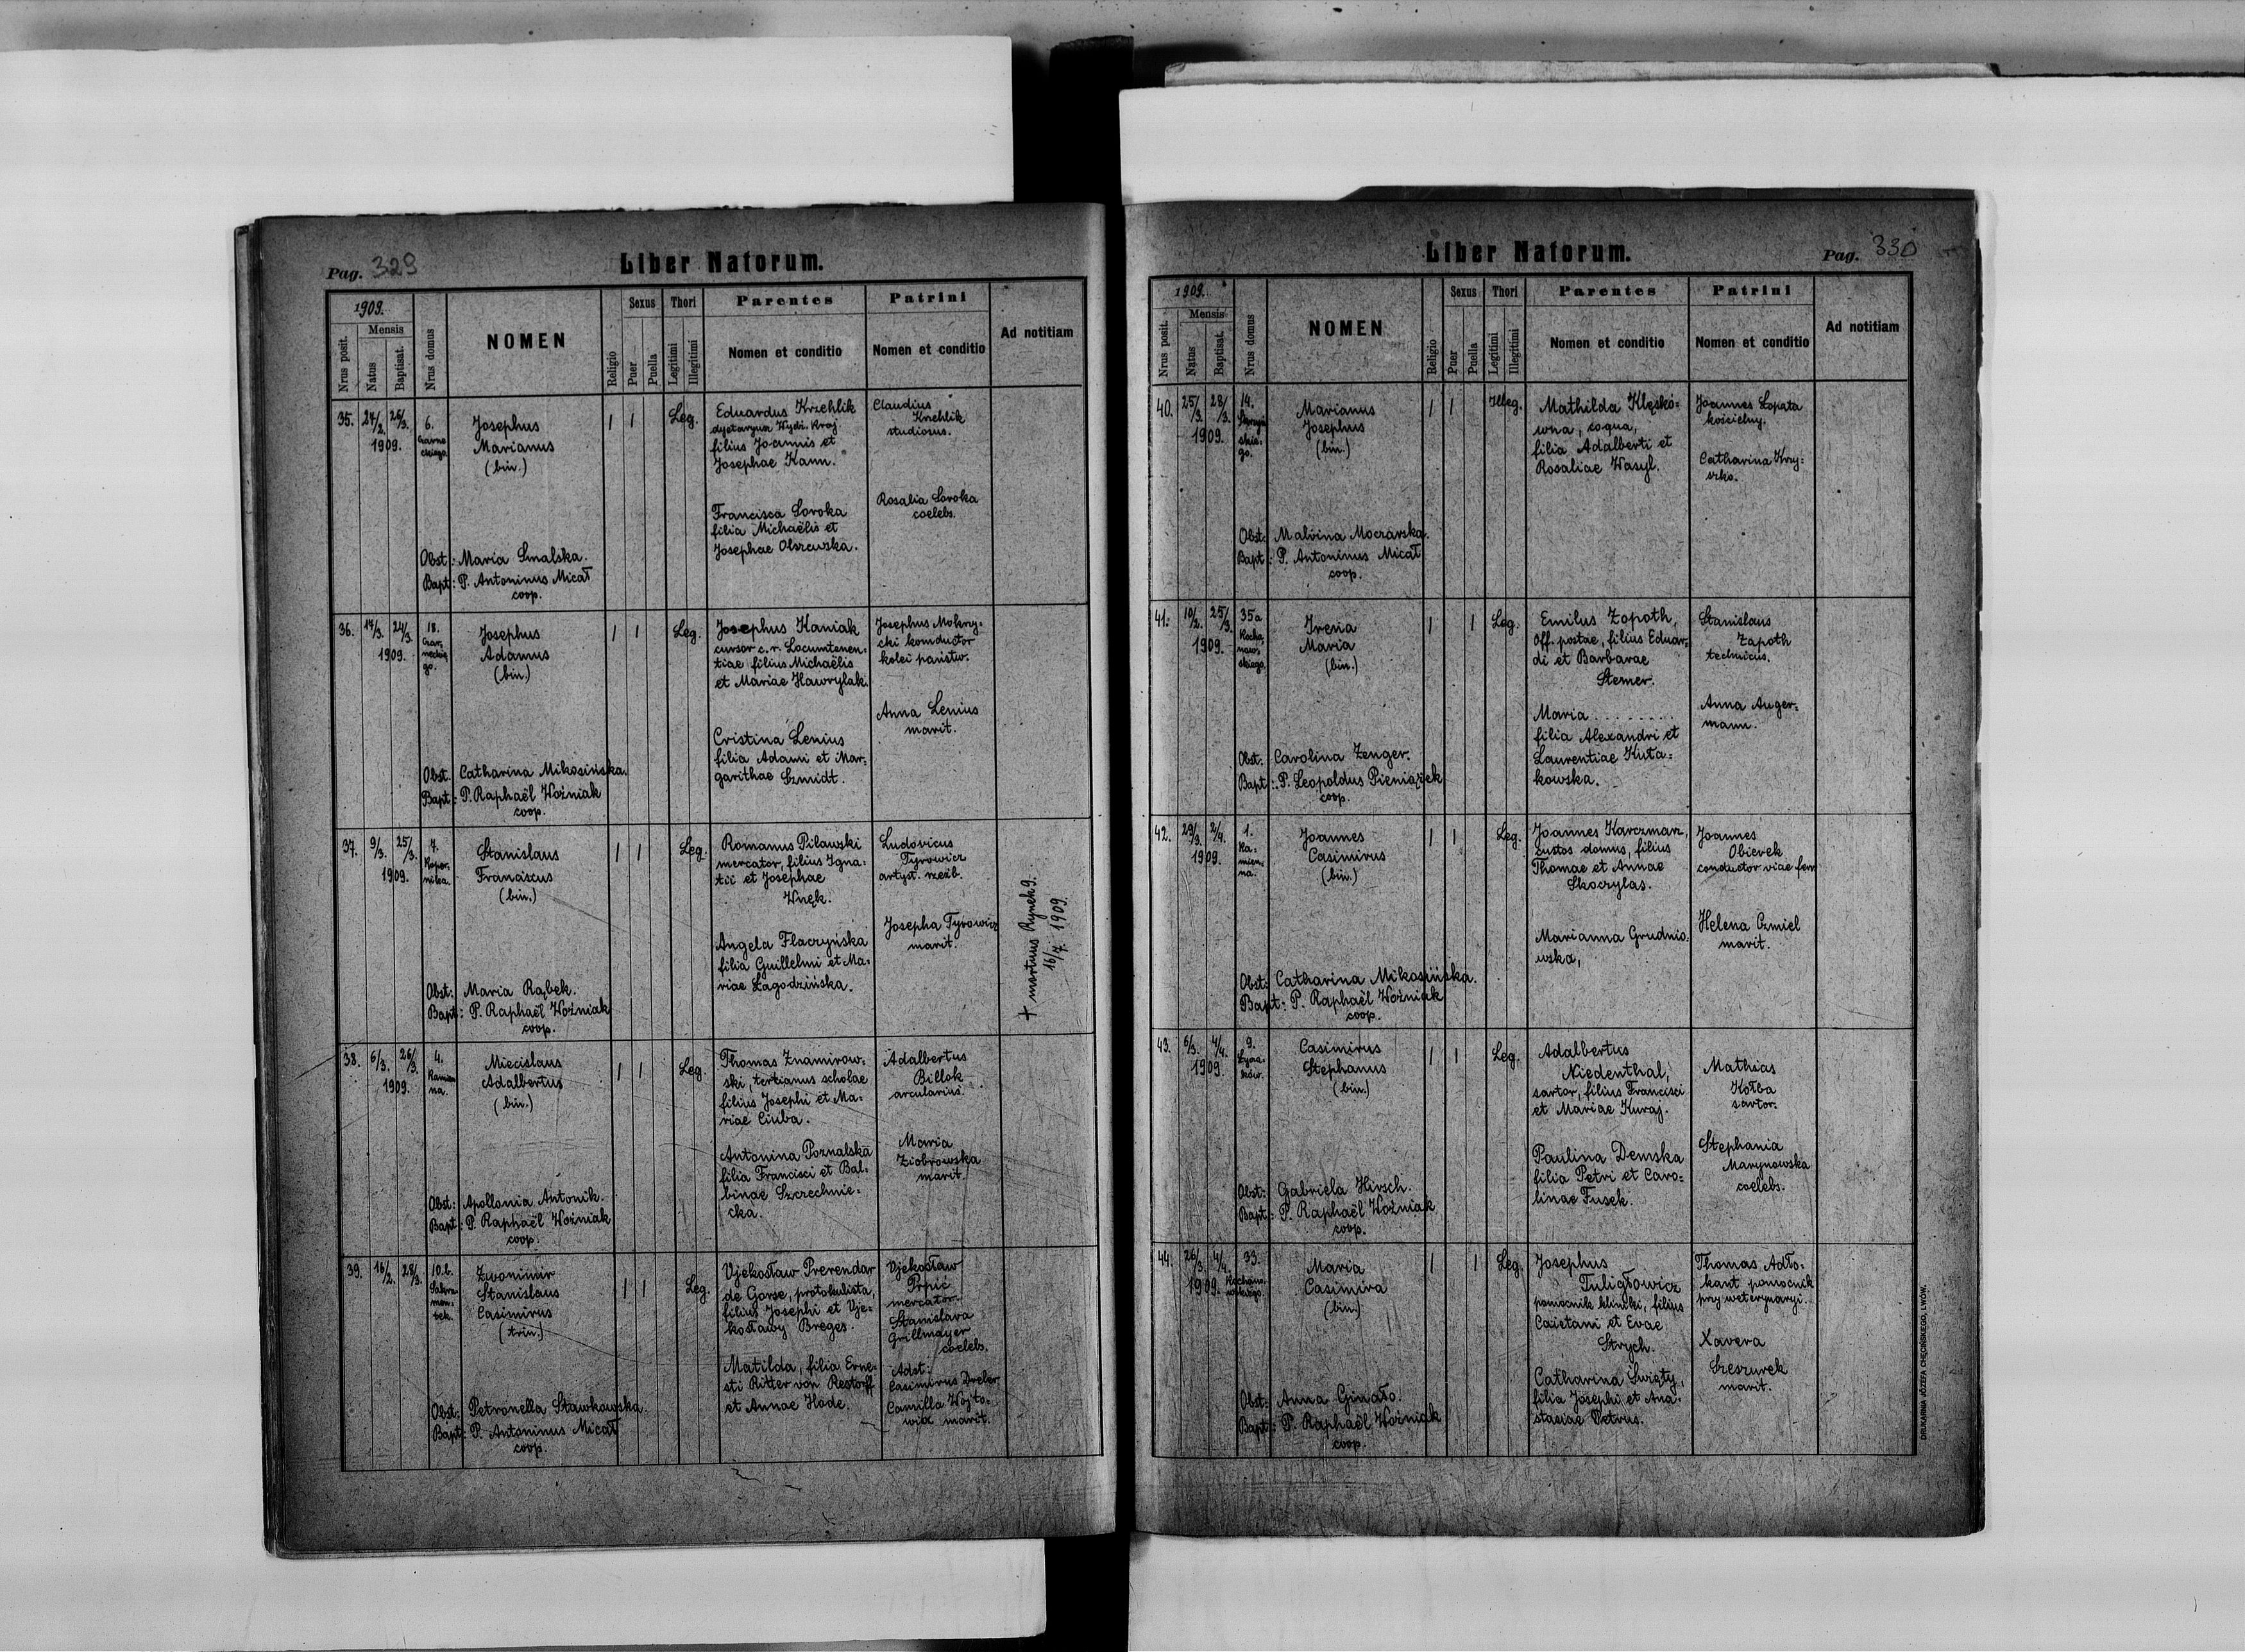 Pag. 329
Liber Natorum.
1909.
Mensis
Nrus posit.
Natus
Baptisat.
Nrus domus
NOMEN
Religio
Sexus
Puer
Puella
Thori
Legitimi
Illegitimi
Parentes
Nomen et conditio
Patrini
Nomen et conditio
Ad notitiam
35. 24/2. 26/3.
1909.
6.
Czarne
ckiego.
Josephus
Marianus
(bin.)
Obst.: Maria Smalska.
Bapt: P. Antoninus Micał
coop.
1 1 Leg.
Eduardus Krzehlik
dyetaryusz Wydz. Kraj.
filius Joannis et
Josephae Kann.
Francisca Soroka
filia Michaëlis et
Josephae Olszewska.
Claudius
Krehlik
studiosus.
Rosalia Soroka
coelebs.
36. 17/3. 24/3.
1909.
18.
Czar-
neckie
go.
Josephus
Adamus
(bin.)
Obst. Catharina Mikosińska.
Bapt: P. Raphaël Woźniak
coop.
1 1 Leg.
Josephus Kaniak
cursor c. r. Locumtenen-
tiae filius Michaëlis
et Mariae Hawrylak.
Cristina Lenius
filia Adami et Mar-
garithae Szmidt.
Josephus Mokrzy-
cki konductor
kolei państw.
Anna Lenius
marit.
37. 9/3. 25/3.
1909.
7.
Koper-
nika.
Stanislaus
Franciscus
(bin.)
Obst: Maria Rąbek.
Bapt: P. Raphaël Woźniak
coop.
1 1 Leg.
Romanus Pilawski
mercator, filius Igna-
tii et Josephae
Wnęk.
Angela Flaczyńska
filia Guillelmi et Ma-
riae Łagodzińska.
Ludovicus
Tyrowicz
artyst. rzeźb.
Josepha Tyrowicz
marit.
+ mortuus Rynek 9.
16/7. 1909.
38. 6/3. 26/3.
1909.
4.
Kamien
na.
Miecislaus
Adalbertus
(bin.)
Obst: Apollonia Antonik.
Bapt: P. Raphaël Woźniak
coop.
1 1 Leg.
Thomas Znamirow-
ski, tertianus scholae
filius Josephi et Ma-
riae Ciuba.
Antonina Poznalska
filia Francisci et Bal-
binae Szczechnie-
cka.
Adalbertus
Billok
arcularius.
Maria
Ziobrowska
marit.
39. 16/2. 28/3.
10.b.
Sakra-
men-
tek.
Zwonimir
Stanislaus
Casimirus
(trin.)
Obst: Petronella Stawkowska.
Bapt: P. Antoninus Micał
coop.
1 1 Leg.
Vjekosław Preendar
de Gorse, protokulista,
filius Josephi et Vje-
kosławy Breges.
Matilda, filia Erne-
sti Ritter von Restorff
et Annae Hode.
Vjekosław
Prpić
mercator.
Stanislava
Grillmayer
coelebs.
Adst:
Casimirus Dreler
Camilla Wojto-
wicz marit.
Pag. 330
Liber Natorum.
1909.
Mensis
Nrus posit.
Natus
Baptisat.
Nrus domus
NOMEN
Religio
Sexus
Puer
Puella
Thori
Legitimi
Illegitimi
Parentes
Nomen et conditio
Patrini
Nomen et conditio
Ad notitiam
40. 25/3 28/3.
1909.
14.
skie-
go.
Marianus
Josephus
(bin.)
Obst: Malvina Moczarska.
Bapt: P. Antoninus Micał
coop.
1 1 Illeg.
Mathilda Klęskó-
wna, coqua,
filia Adalberti et
Rosaliae Wasyl.
Joannes Łopata
kościelny.
Catharina Krzy-
szko.
41. 10/2. 25/3.
1909.
35a
Kocha-
now-
skiego.
Irena
Maria
(bin.)
Obst: Carolina Zenger.
Bapt: P. Leopoldus Pieniążek
coop.
1 1 Leg.
Emilus Zopoth,
off. postae, filius Eduar-
di et Barbarae
Stemer.
Maria . . . . . . . .
filia Alexandri et
Laurentiae Kuta-
kowska.
Stanislaus
Zapoth
technicus.
Anna Auger-
mann.
42. 29/3. 2/4.
1909.
1.
Ka-
mien-
na.
Joannes
Casimirus
(bin.)
Obst: Catharina Mikosińska.
Bapt: P. Raphaël Woźniak
coop.
1 1 Leg.
Joannes Karczmarz,
custos domus, filius
Thomae et Annae
Skoczylas.
Marianna Grudnio-
wska,
Joannes
Obierek
conductor viae ferr
Helena Czmiel
marit.
43. 6/3. 4/4.
1909.
9.
Łycza-
ków.
Casimirus
Stephanus
(bin.)
Obst: Gabriela Hirsch.
Bapt: P. Raphaël Woźniak
coop.
1 1 Leg.
Adalbertus
Niedenthal,
sartor, filius Francisci
et Mariae Kuraj.
Paulina Demska
filia Petri et Caro-
linae Fusek.
Mathias
Kołba
sartor.
Stephania
Marynowska
coelebs.
44. 26/3. 4/4.
1909.
33.
Kochano-
wskiego.
Maria
Casimira
(bin.)
Obst: Anna Ginało.
Bapt: P. Raphaël Woźniak
coop.
1 1 Leg.
Josephus
Tuligłowicz
pomocnik kliniki, filius
Caietani et Evae
Strych.
Catharina Święty,
filia Josephi et Ana-
stasiae Petrus.
Thomas Adło-
kant pomocnik
przy weterynaryi.
Xavera
Szeszurek
marit.
DRUKARNIA JÓZEFA CHĘCIŃSKIEGO, LWÓW.